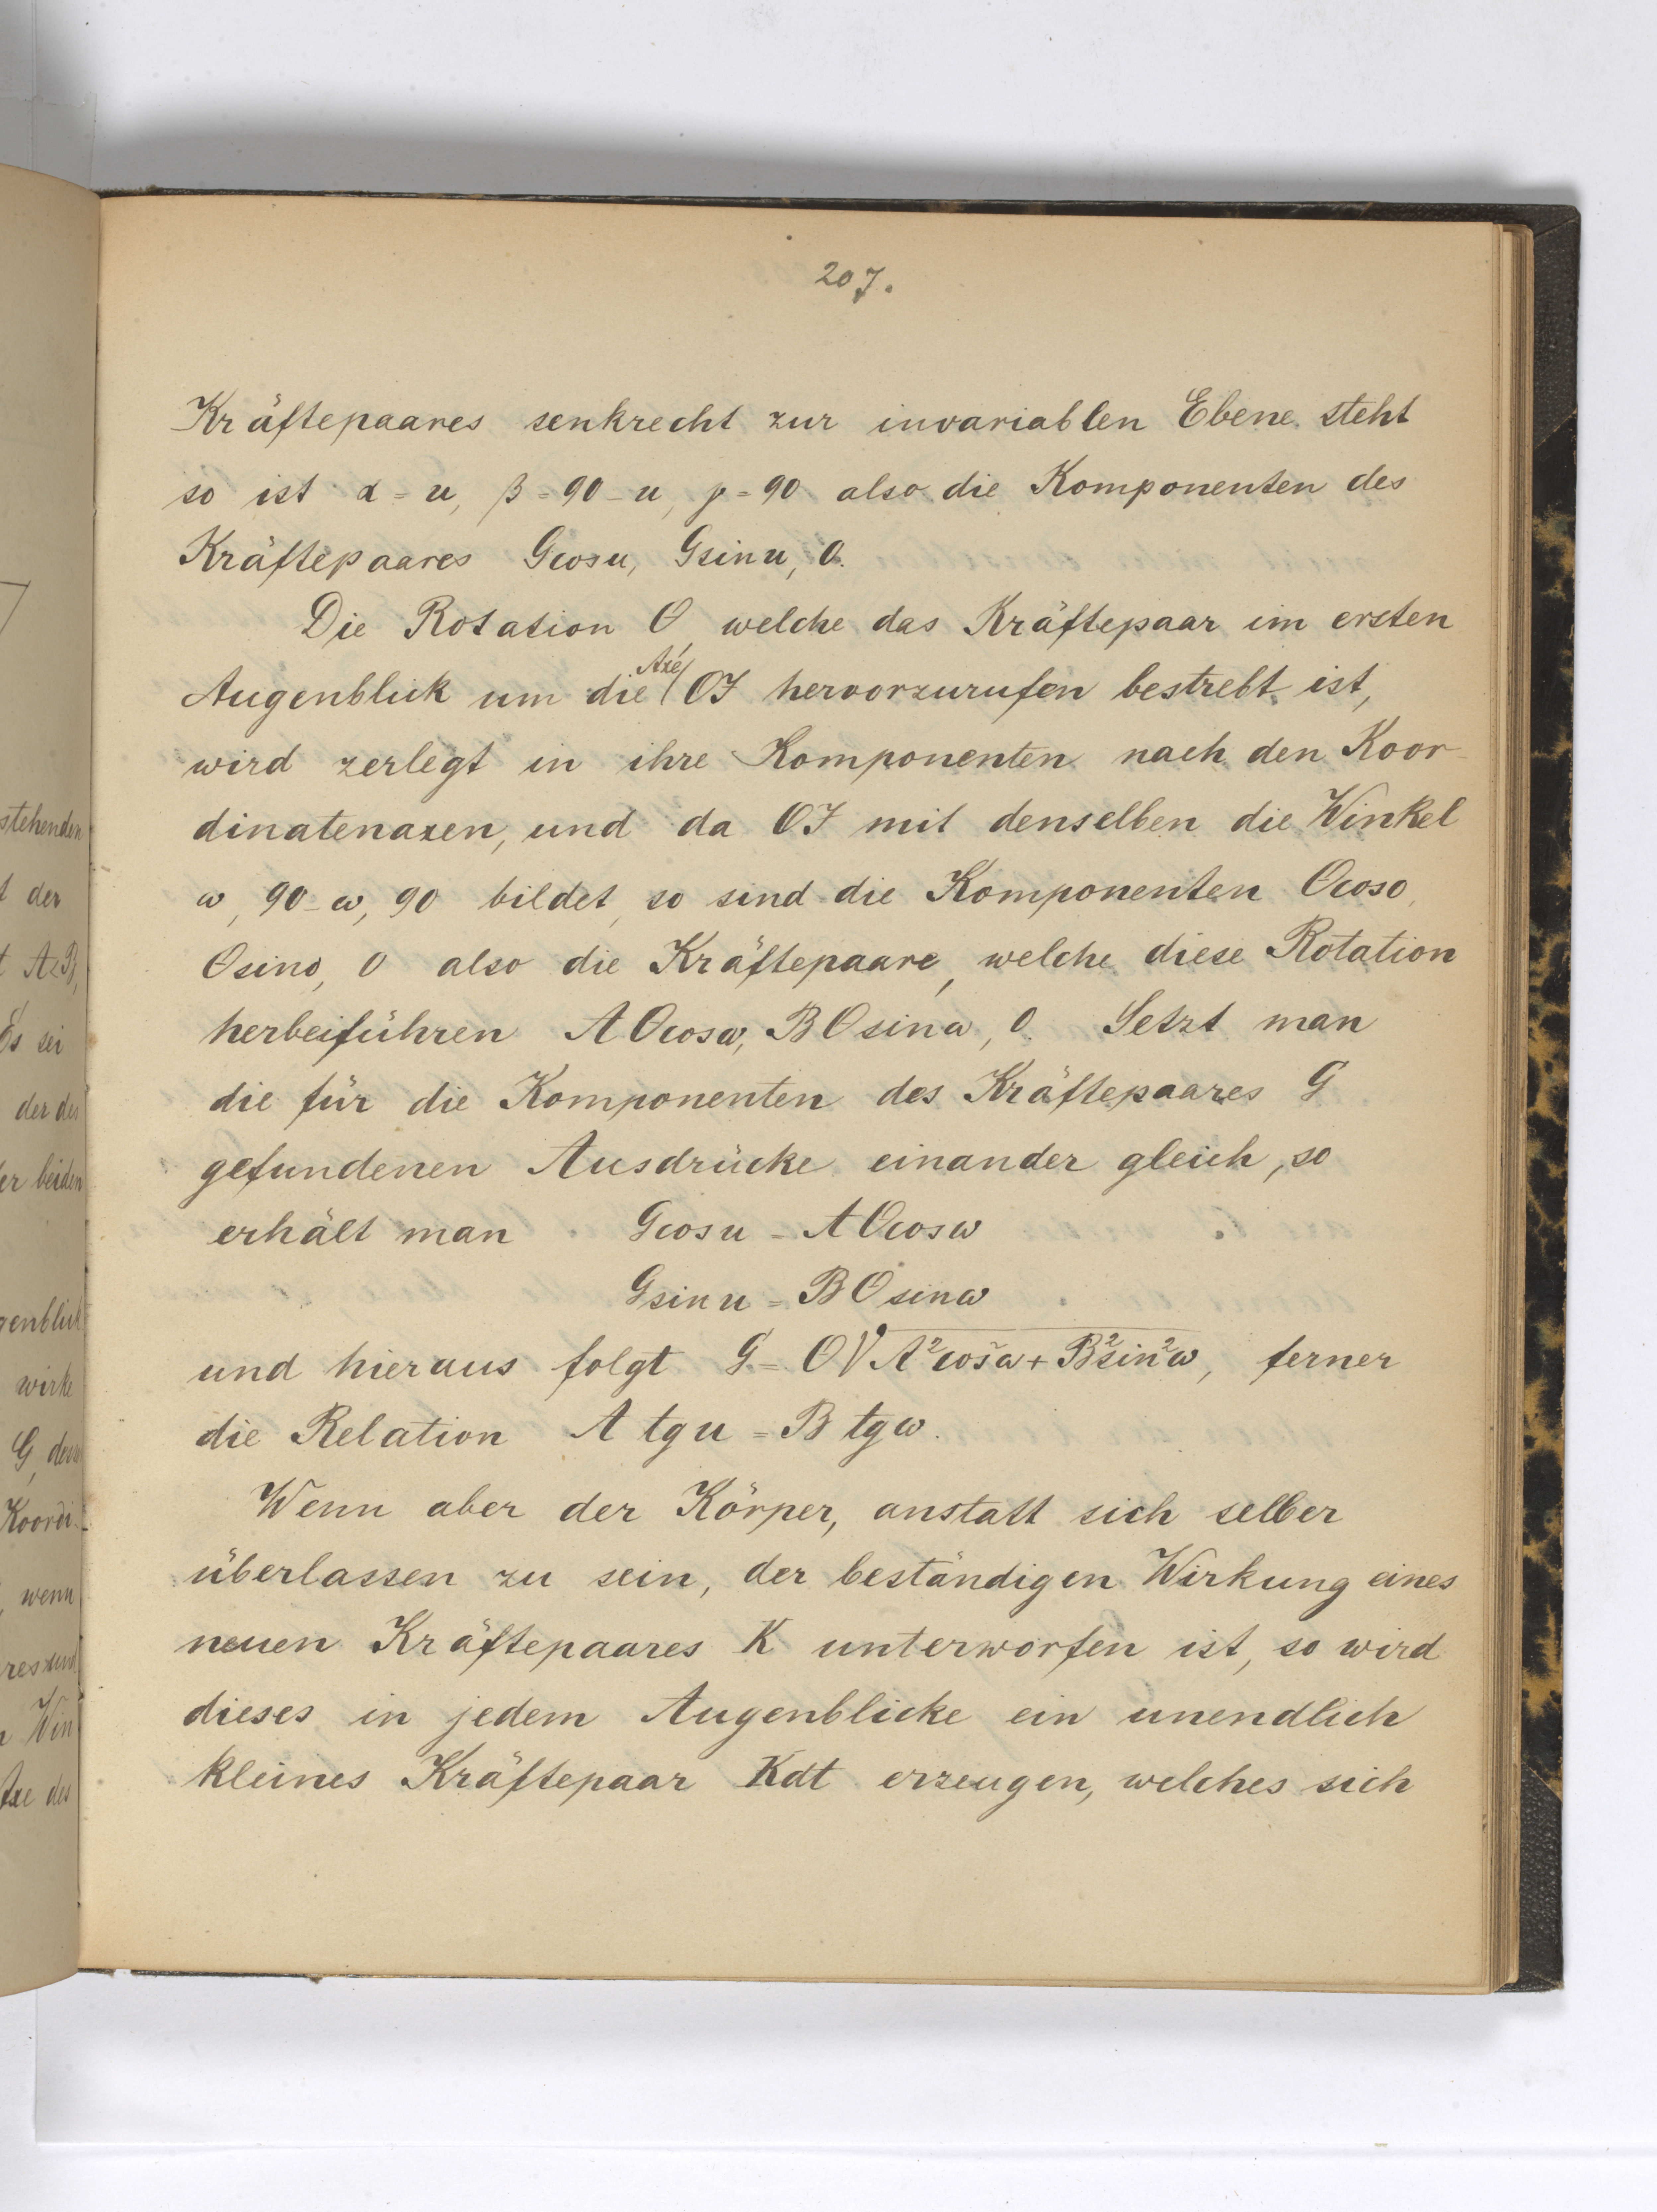 207.
Kräftepaares senkrecht zur invariablen Ebene steht
so ist α = u, β = 90 - u, γ = 90 also die Komponenten des
Kräftepaares Gcosu, Gsinu, O.
Die Rotation O, welche das Kräftepaar im ersten
Augenblick um die Axe OJ hervorzurufen bestrebt ist,
wird zerlegt in ihre Komponenten nach den Koor-
dinatenaxen, und da OJ mit denselben die Winkel
ω, 90 - ω, 90 bildet, so sind die Komponenten Ocoso,
Osino, 0 also die Kräftepaare, welche diese Rotation
herbeiführen AOcosω, BOsinω, 0. Setzt man
die für die Komponenten des Kräftepaares G
gefundenen Ausdrücke einander gleich, so
erhält man Gcosu = AOcosω
Gsinu = BOsinω
und hieraus folgt G = O√A²cos²ω + B²sin²ω, ferner
die Relation A tgu = B tgω.
Wenn aber der Körper, anstatt sich selber
überlassen zu sein, der beständigen Wirkung eines
neuen Kräftepaares K unterworfen ist, so wird
dieses in jedem Augenblicke ein unendlich
kleines Kräftepaar Kdt erzeugen, welches sich
stehenden
der
A<B,
Es sei
der des
er beiden
genblick
wirke
G, deren
Koordi-
, wenn
Win
Axe des